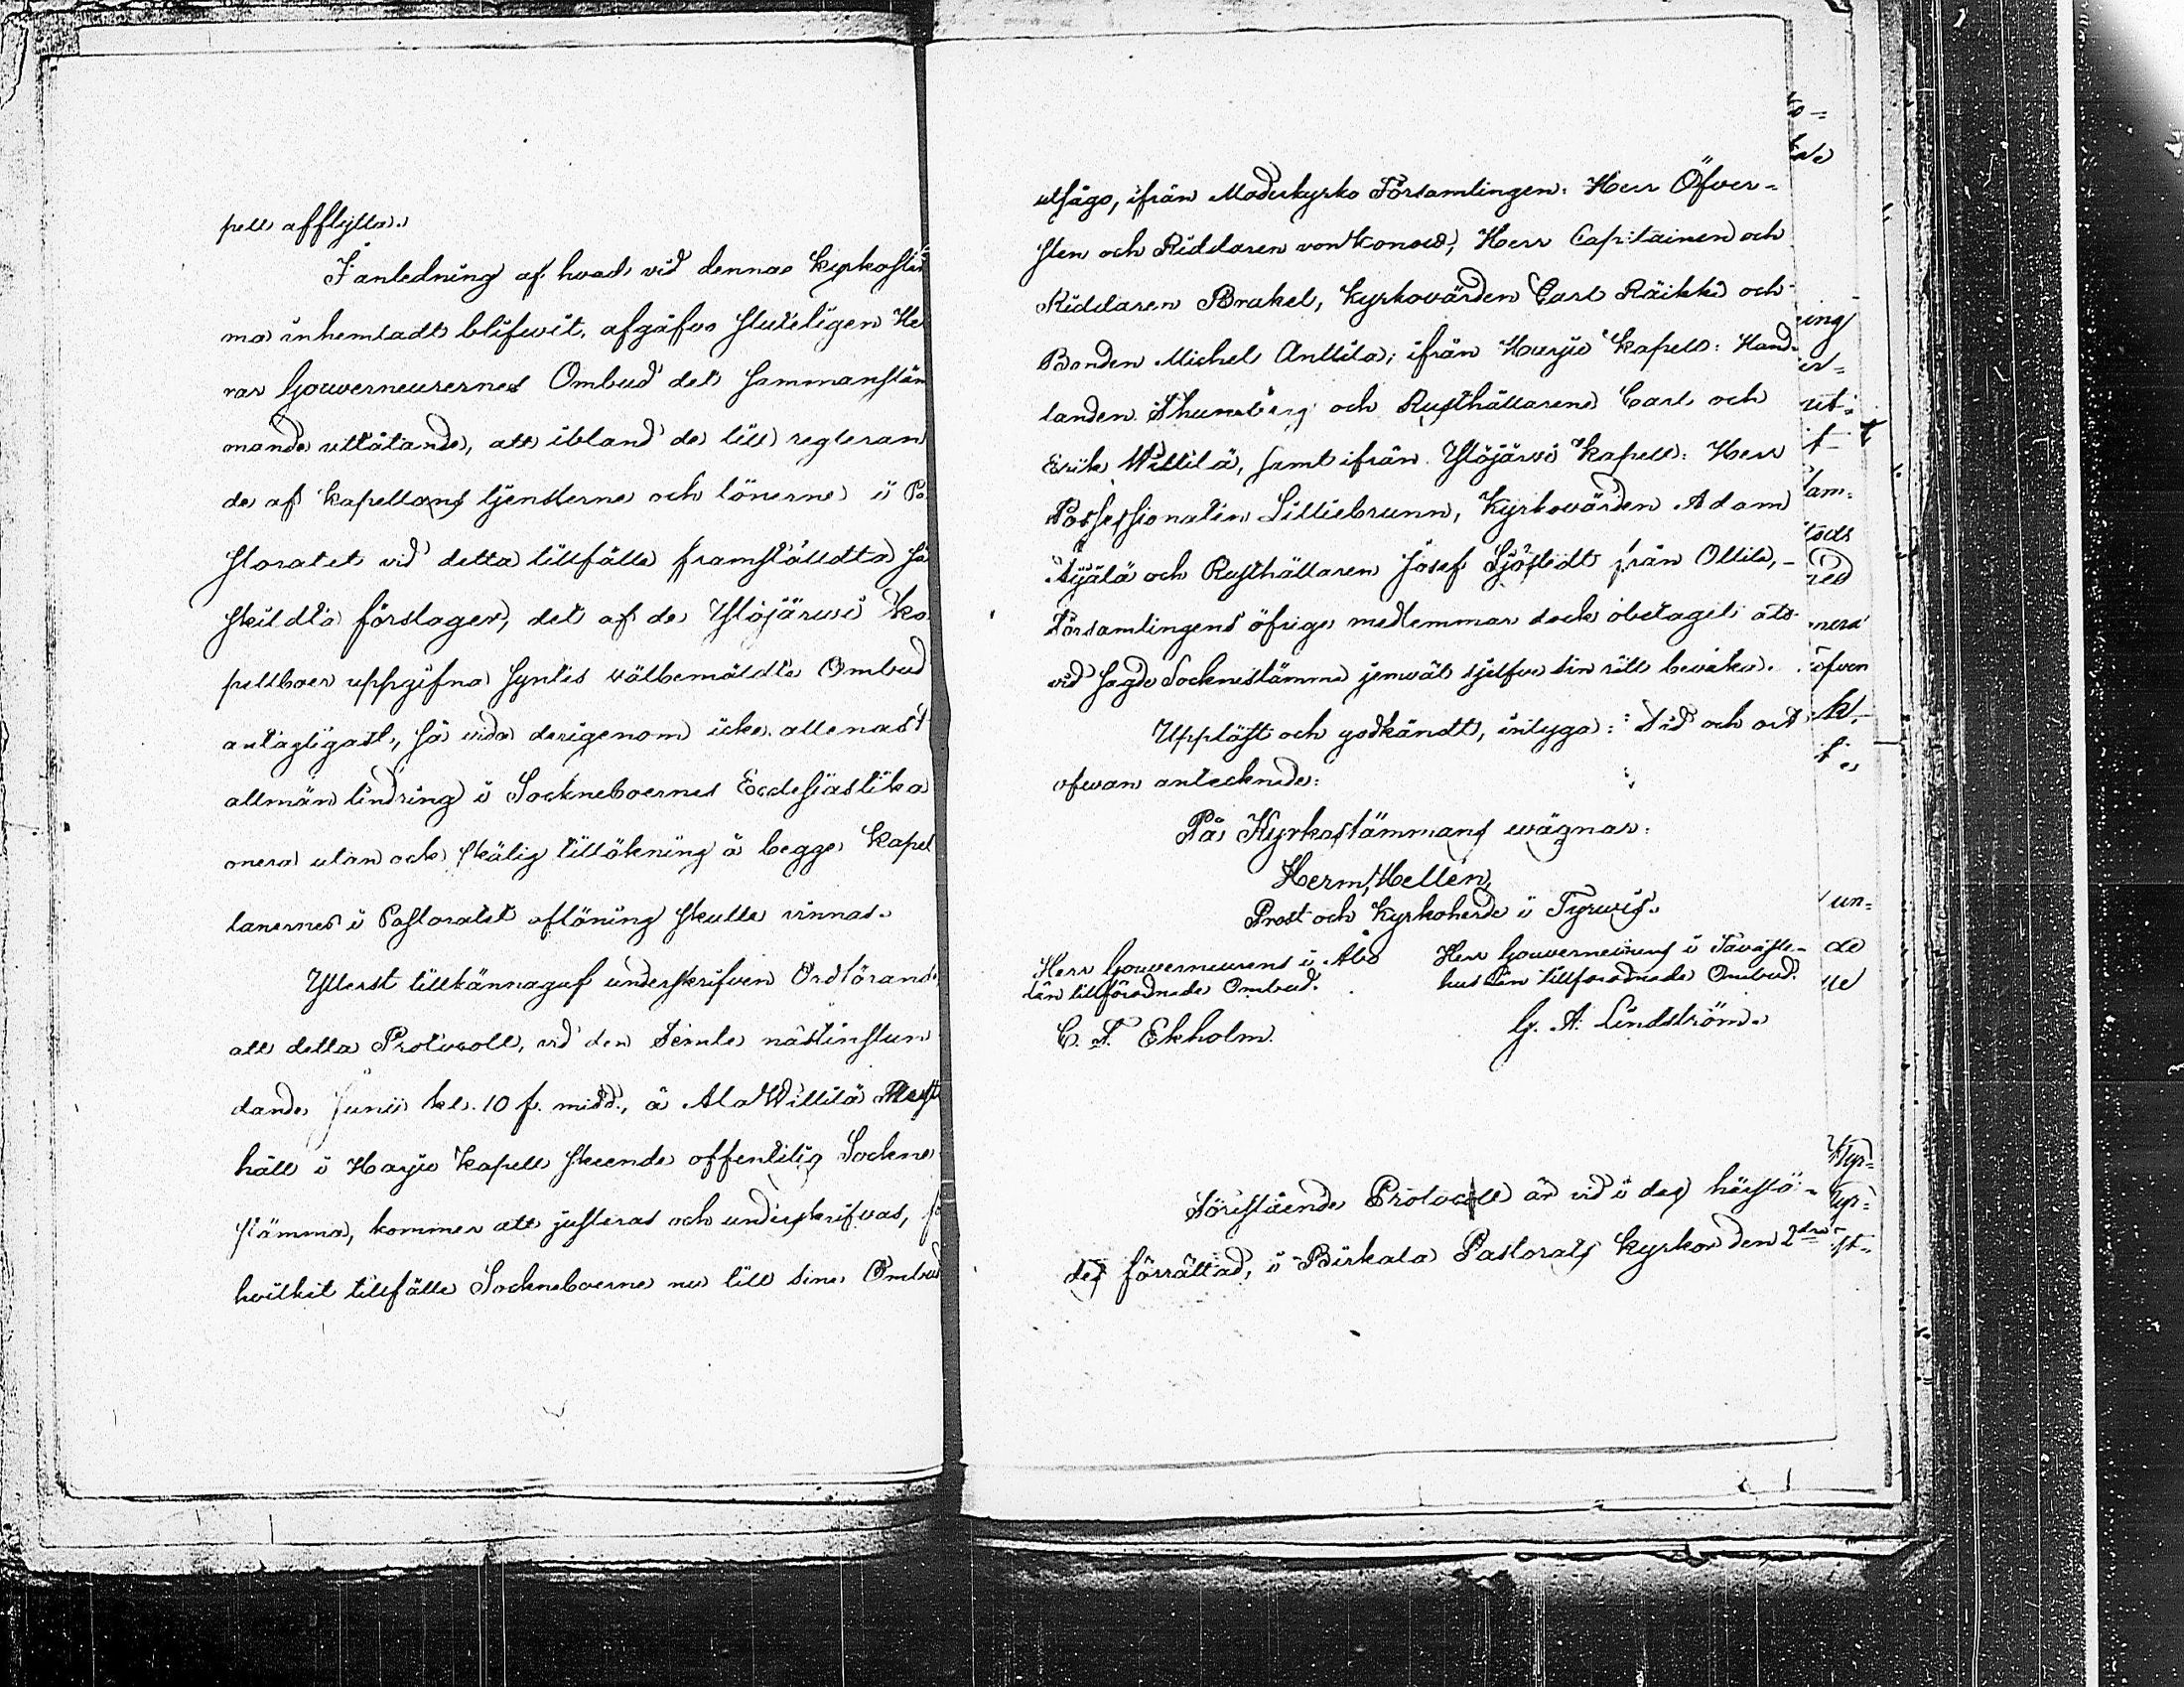 pell afflytta.
I anledning af hvad vid denna kyrkostä
ma inhemtadt blifwit, afgåfvo sluteligen He
rar Gouverneurernes Ombud det sammanstäm
mande utlåtande, att ibland de till regleran
de af kapellans tjensterne och lönerne i Pa
storatet vid detta tillfälle framställdta sär
skildta förslager, det af de Ylöjärwi ka
pellboer uppgifna syntes välbemäldte Ombud
antagligast, så vida derigenom icke allenast
allmän lindring i Sockneboernes Ecclesiastika
onera utan ock skälig tillökning å begge Kapel
lanernes i Pastoratet aflöning skulle vinnas.
Ytterst tillkännagaf underskrifven Ordförand
att detta Protocoll, vid den femte nästinstun
dande Junii kl. 10 f. midd., å Ala Willilä Rust
håll i Harju Kapell skeende offentelig Sockne
stämma, kommer att justeras och underskrifvas, fö
hvilket tillfälle Sockneboerne nu till sine Ombud
utsågo, ifrån Moderkyrko Församlingen: Herr Öfver-
sten och Riddaren von Konow, Herr Capitainen och
Riddaren Brakel, Kyrkovärden Carl Räikkä och
Bonden Michel Anttila; ifrån Harju Kapell: Hand-
landen Thuneberg och Rusthållarene Carl och
Erik Willilä, samt ifrån Ylöjärwi Kapell: Herr
Possessionaten Lilliebrunn, Kyrkovärden Adam
Äijälä och Rusthållaren Josef Sjöstedt från Ollila, -
Församlingens öfrige medlemmar dock obetaget att
vid sagde Socknestämma jemväl sjelfve sin rätt bevaka.
Uppläst och godkändt, intyga: Tid och ort
ofwan antecknade:
På Kyrkostämmans wägnar:
Herm. Hellén,
Prost och Kyrkoherde i Tyrwis.
Herr Gouverneurens i Åbo
Län tillförodnade Ombud.
C. F. Ekholm.
Herr Gouverneurens i Tavaste-
hus Län tillförodnade Ombud.
G. A. Lindström.
Förestående Protocoll är vid i dag härstä-
des förrättad, i Birkala Pastorats kyrka den 2dra